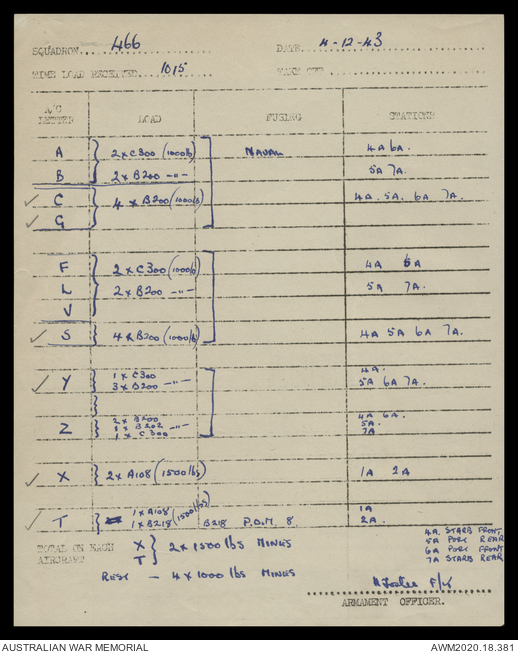 SQUADRON 466 DATE 4-12-43
TIME LOAD RECEIVED 1015 TAKE OFF
A/C LETTER LOAD FUZING STATIONS
A 2 x C300 (1000lb) NAVAL 4A 6A.
B 2 x B200 -"- 5A 7A.
C 4 x B200 (1000lb) 4A. 5A. 6A 7A.
G
F 2 x C300 (1000lb) 4A 6A
L 2 x B200 -"- 5A 7A.
V
S 4 x B200 (1000lb) 4A 5A 6A 7A.
Y 1 x C300 4A.
3 x B200 -"- 5A 6A 7A.
2 x B200 4A 6A.
Z 1 x B202 -"- 5A.
1 x C300 7A
X 2 x A108 (1500lbs) 1A 2A
T 1 x A108 (1500lbs) 1A
1 x B218 B218 P.D.M. 8 2A.
TOTAL ON EACH AIRCRAFT X T } 2 x 1500 lbs MINES
REST - 4 x 1000 lbs MINES
4A. STARB FRONT
5A PORT REAR
6A PORT FRONT
7A STARB REAR
ARMAMENT OFFICER.
AUSTRALIAN WAR MEMORIAL AWM2020.18.381